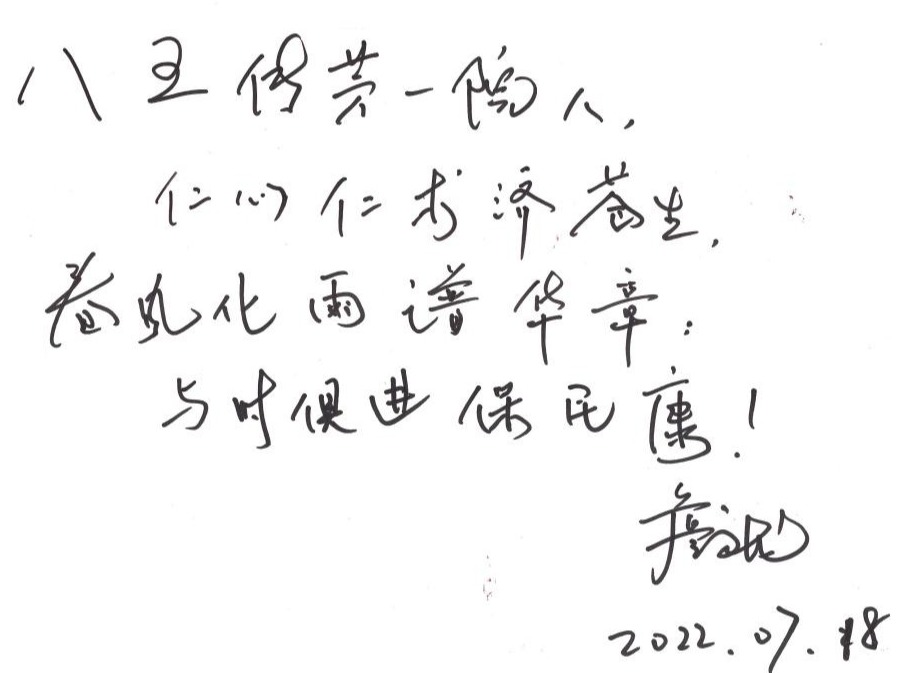 八五传芳一院人,
仁心仁术济苍生,
春风化雨谱华章:
与时俱进保民康!
2022.07.18